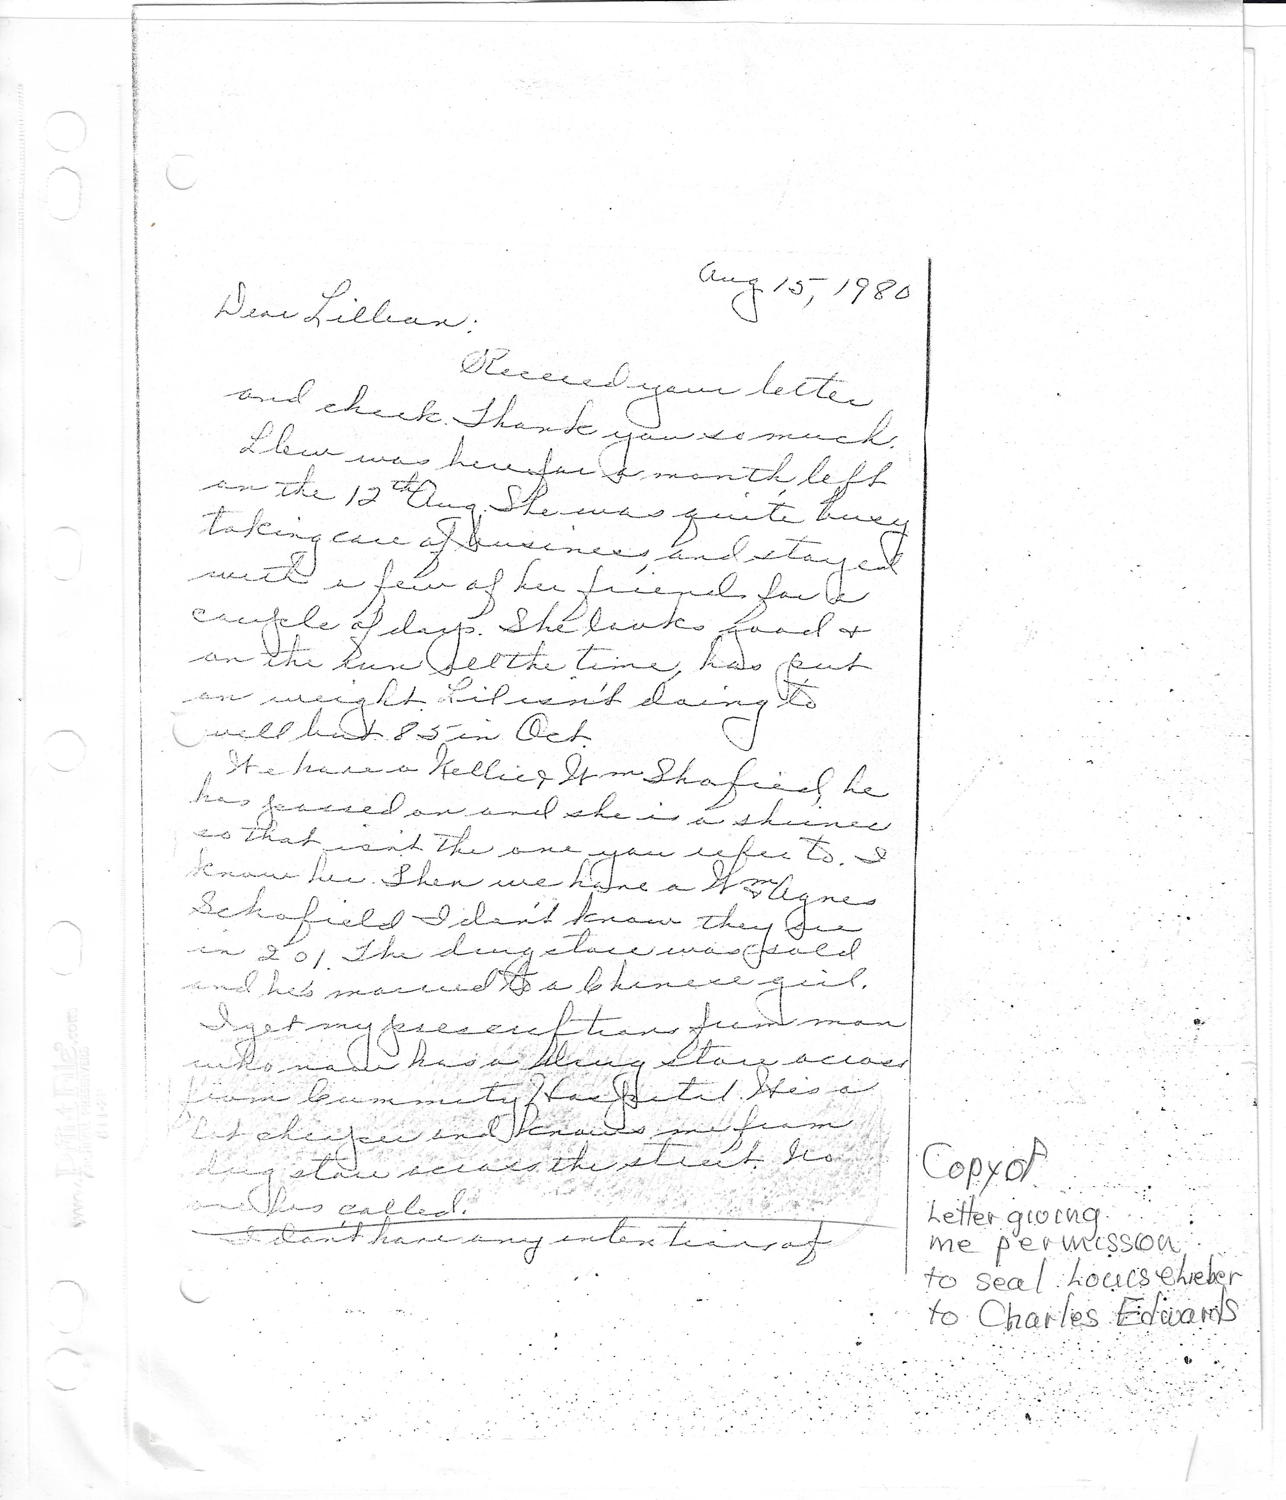 Aug 15, 1980
Dear Lillian:
Received your letter
and check. Thank you so much.
Llew was here for a month, left
on the 12th Aug. She was quite busy
taking care of business, and stayed
with a few of her friends for a
couple of days. She looks good &
on the run all the time, has put
on weight. Lil isn't doing to
well but 85 in Oct.
We have a Nellie & Wm Shofied, he
has passed on and she is a shriner
so that isn't the one you refer to. I
know her. Then we have a Wm & Agnes
Schofield I don't know they are
in 201. The drug store was sold
and he's married to a Chinese girl.
I get my prescriptions from man
who now has a drug store across
from Community Hospital. He is a
lot cheaper and knows me from
drug store across the street. No
one has called.
I don't have any intentions of
Copy of
Letter giving
me permission
to seal Louis
to Charles Edwards